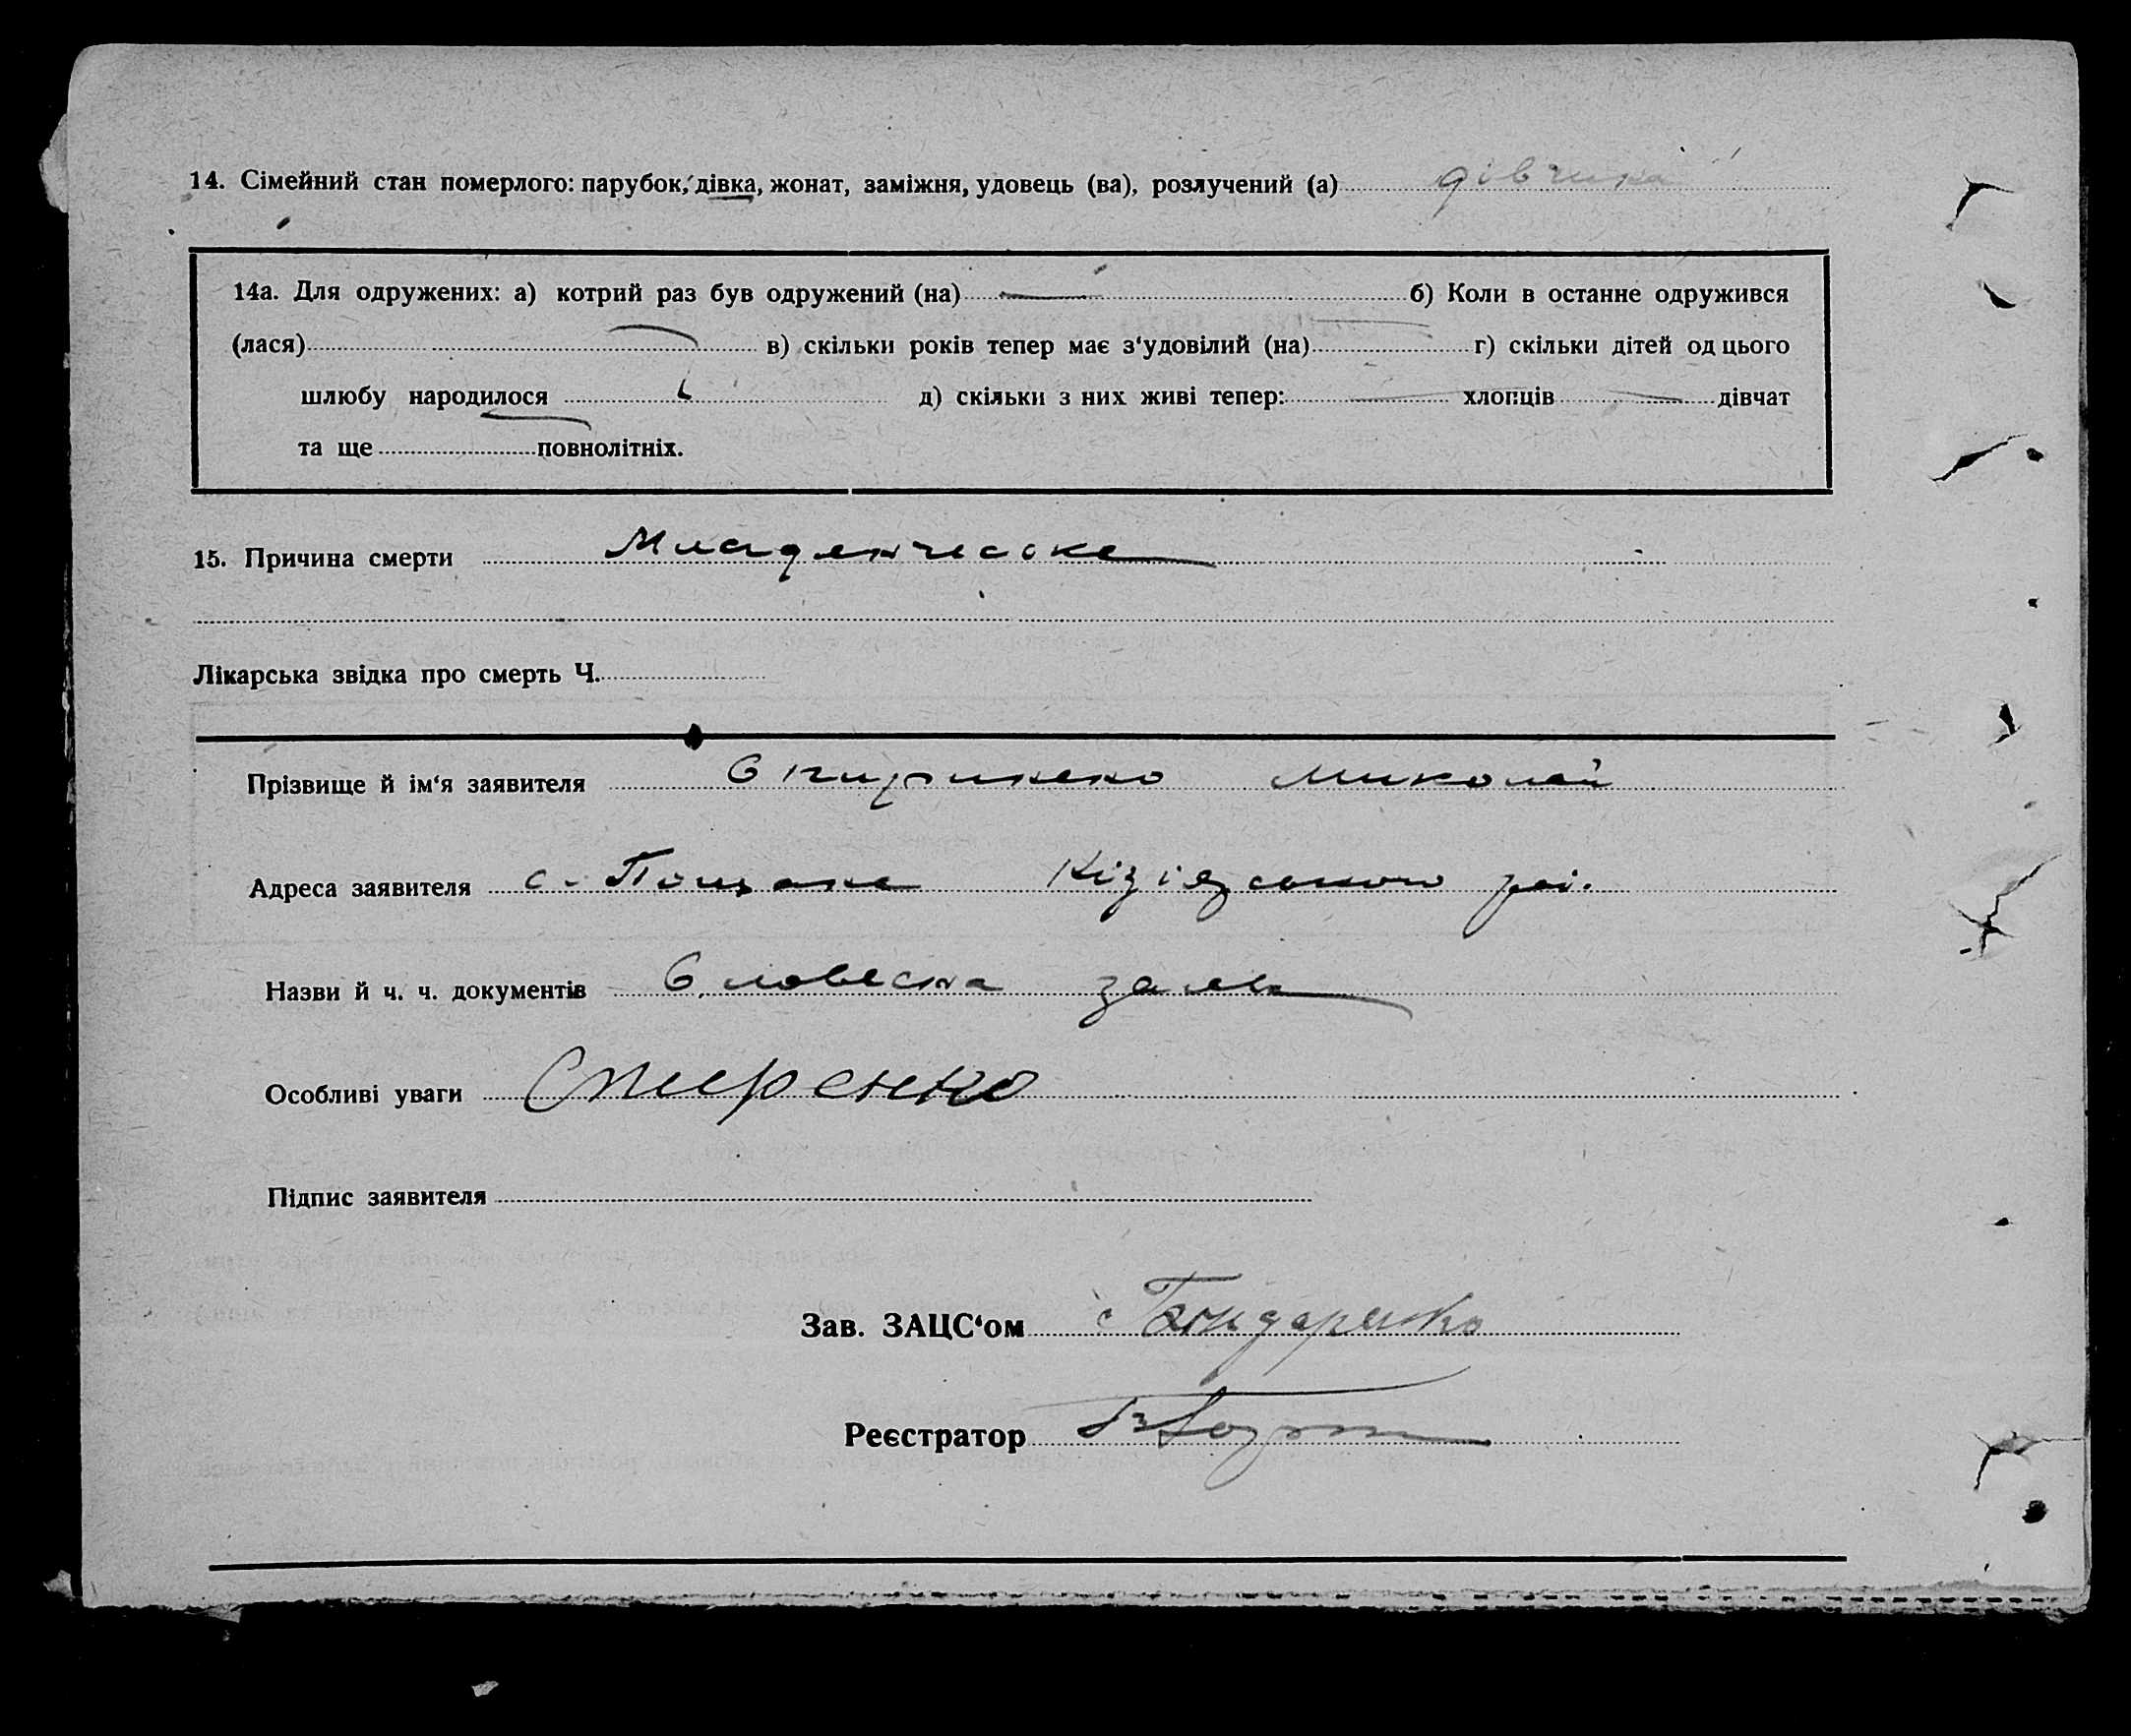 14. Сімейний стан померлого: парубок, дівка, жонат, заміжня, удовець (ва), розлучений (а) дівчина
14а. Для одружених: а) котрий раз був одружений (на) б) Коли в останне одружився
(лася) в) скільки років тепер має з‘удовілий (на) г) скільки дітей од цього
шлюбу народилося д) скільки з них живі тепер: хлопців дівчат
та ще повнолітніх.
15. Причина смерти Младенческе
Лікарська звідка про смерть Ч.
Прізвище й ім‘я заявителя Миколай
Адреса заявителя с. Кізієвського рай.
Назви й ч. ч. документів Словесна заява
Особливі уваги Спиренко
Підпис заявителя
Зав. ЗАЦС‘ом Бондаренко
Реєстратор